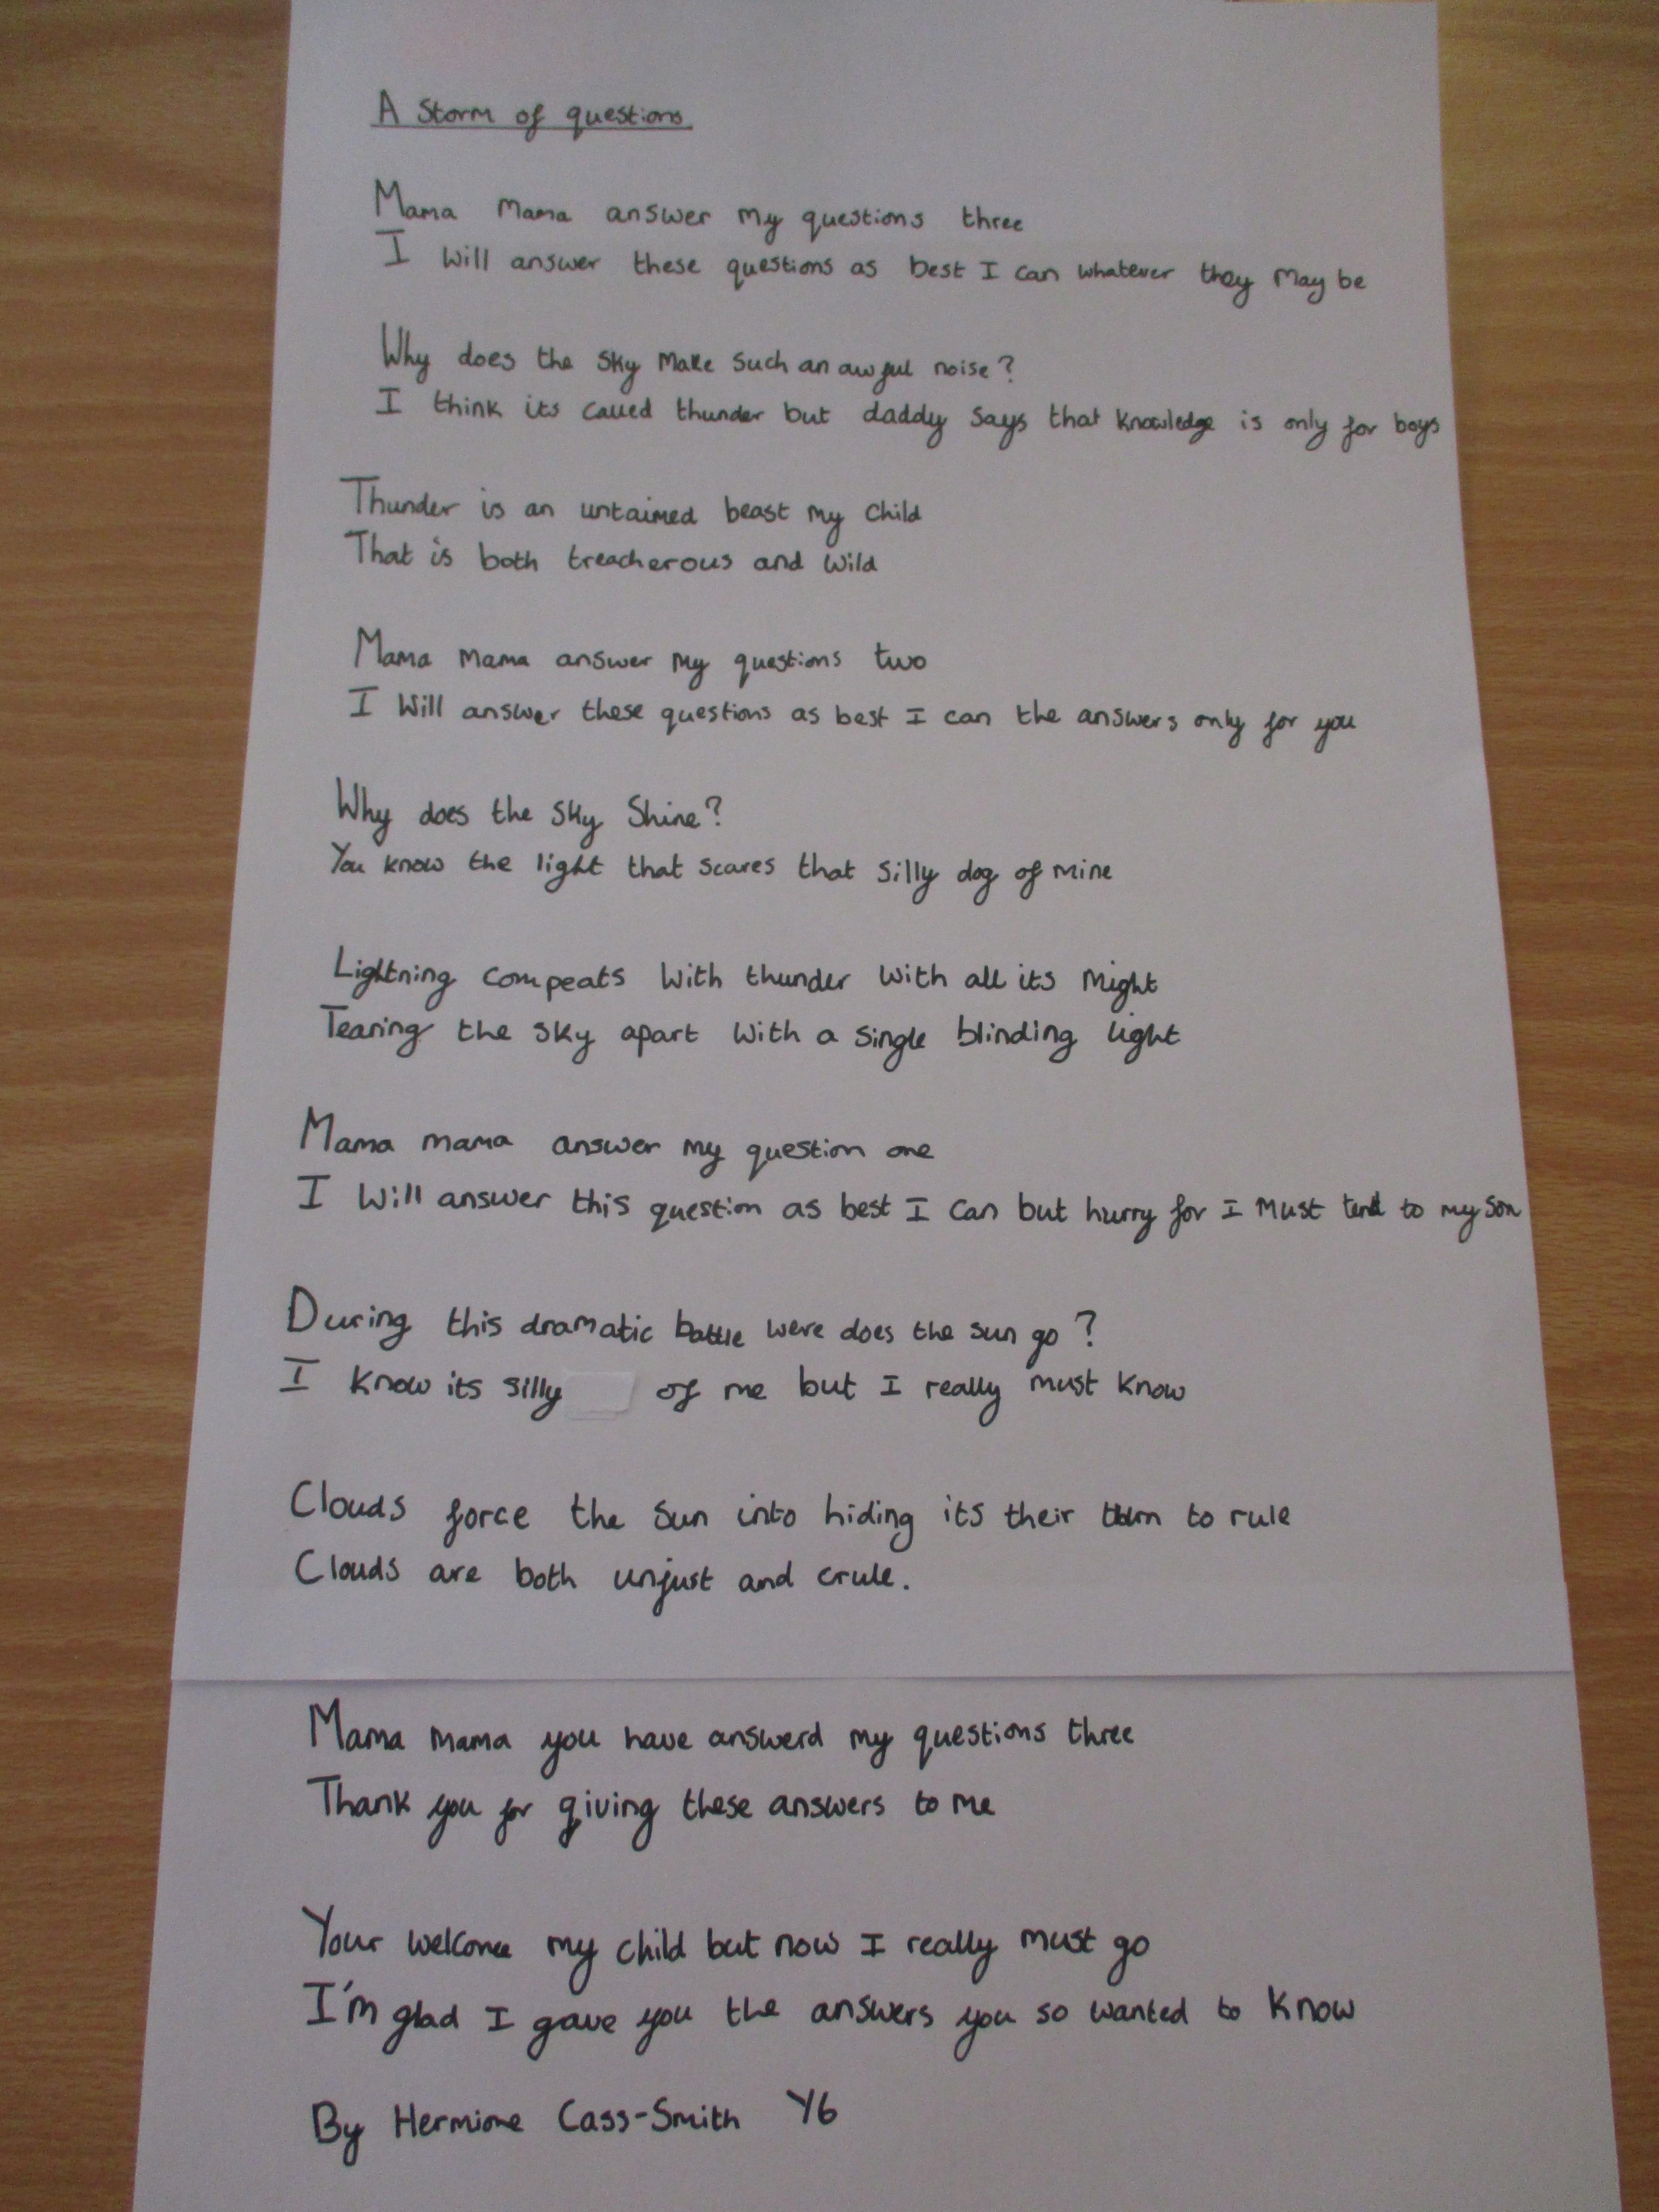 A Storm of questions
Mama Mama answer my questions three
I will answer these questions as best I can whatever they may be
Why does the sky make such an awful noise?
I think its called thunder but daddy says that knowledge is only for boys
Thunder is an untaimed beast my child
That is both treacherous and wild
Mama mama answer my questions two
I will answer these questions as best I can the answers only for you
Why does the sky shine?
You know the light that scares that silly dog of mine
Lightning compeats with thunder with all its might
Tearing the sky apart with a single blinding light
Mama mama answer my question one
I will answer this question as best I can but hurry for I must tend to my son
During this dramatic battle were does the sun go?
I know its silly of me but I really must know
Clouds force the sun into hiding its their turn to rule
Clouds are both unjust and crule.
Mama mama you have answerd my questions three
Thank you for giving these answers to me
Your welcome my child but now I really must go
I'm glad I gave you the answers you so wanted to know
By Hermione Cass-Smith Y6